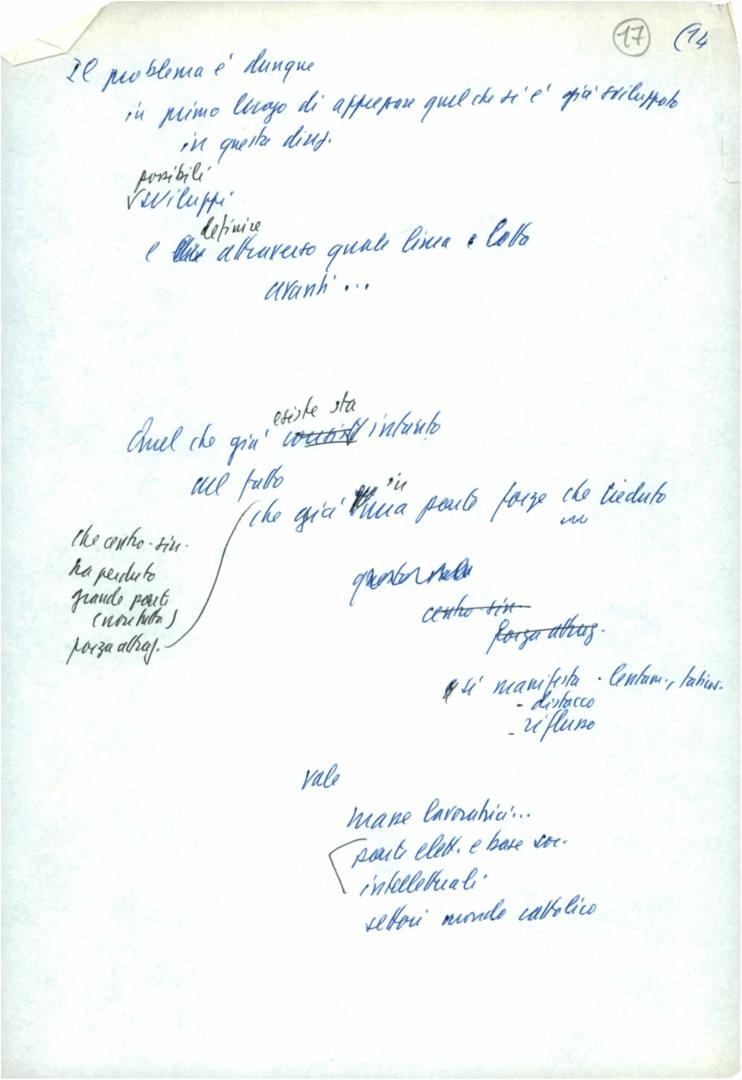 17 (14
Il problema è dunque
in primo luogo di afferrare quel che si è già sviluppato
in questa direz.
possibili
sviluppi
definire
e attraverso quale linea e lotta
avanti...
esiste sta
Quel che già intanto
nel fatto
in
che già una parte forze che creduto
che centro-sin.
ha perduto
grande parte
(non tutta)
forza attraz.
centro-sin.
forza attraz.
si manifesta - lentam., fatic.
- distacco
- riflusso
vale
masse lavoratrici...
parte elett. e base soc.
intellettuali
settori mondo cattolico